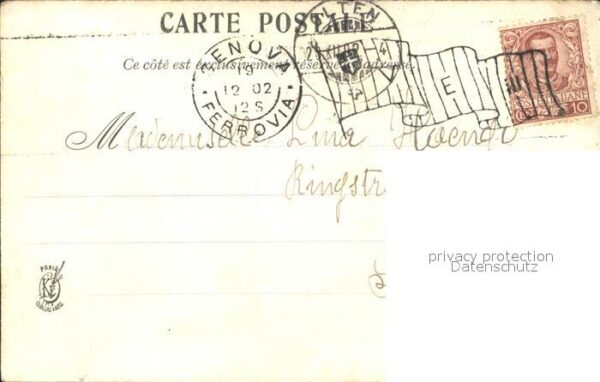 CARTE POSTALE
Ce côté est exclusivement réservé à l'adresse.
GENOVA
19
12 02
12 S
FERROVIA
OLTEN
E
POSTE ITALIANE
10
Mademoiselle Lina
Ringstr
privacy protection
Datenschutz
PARIS